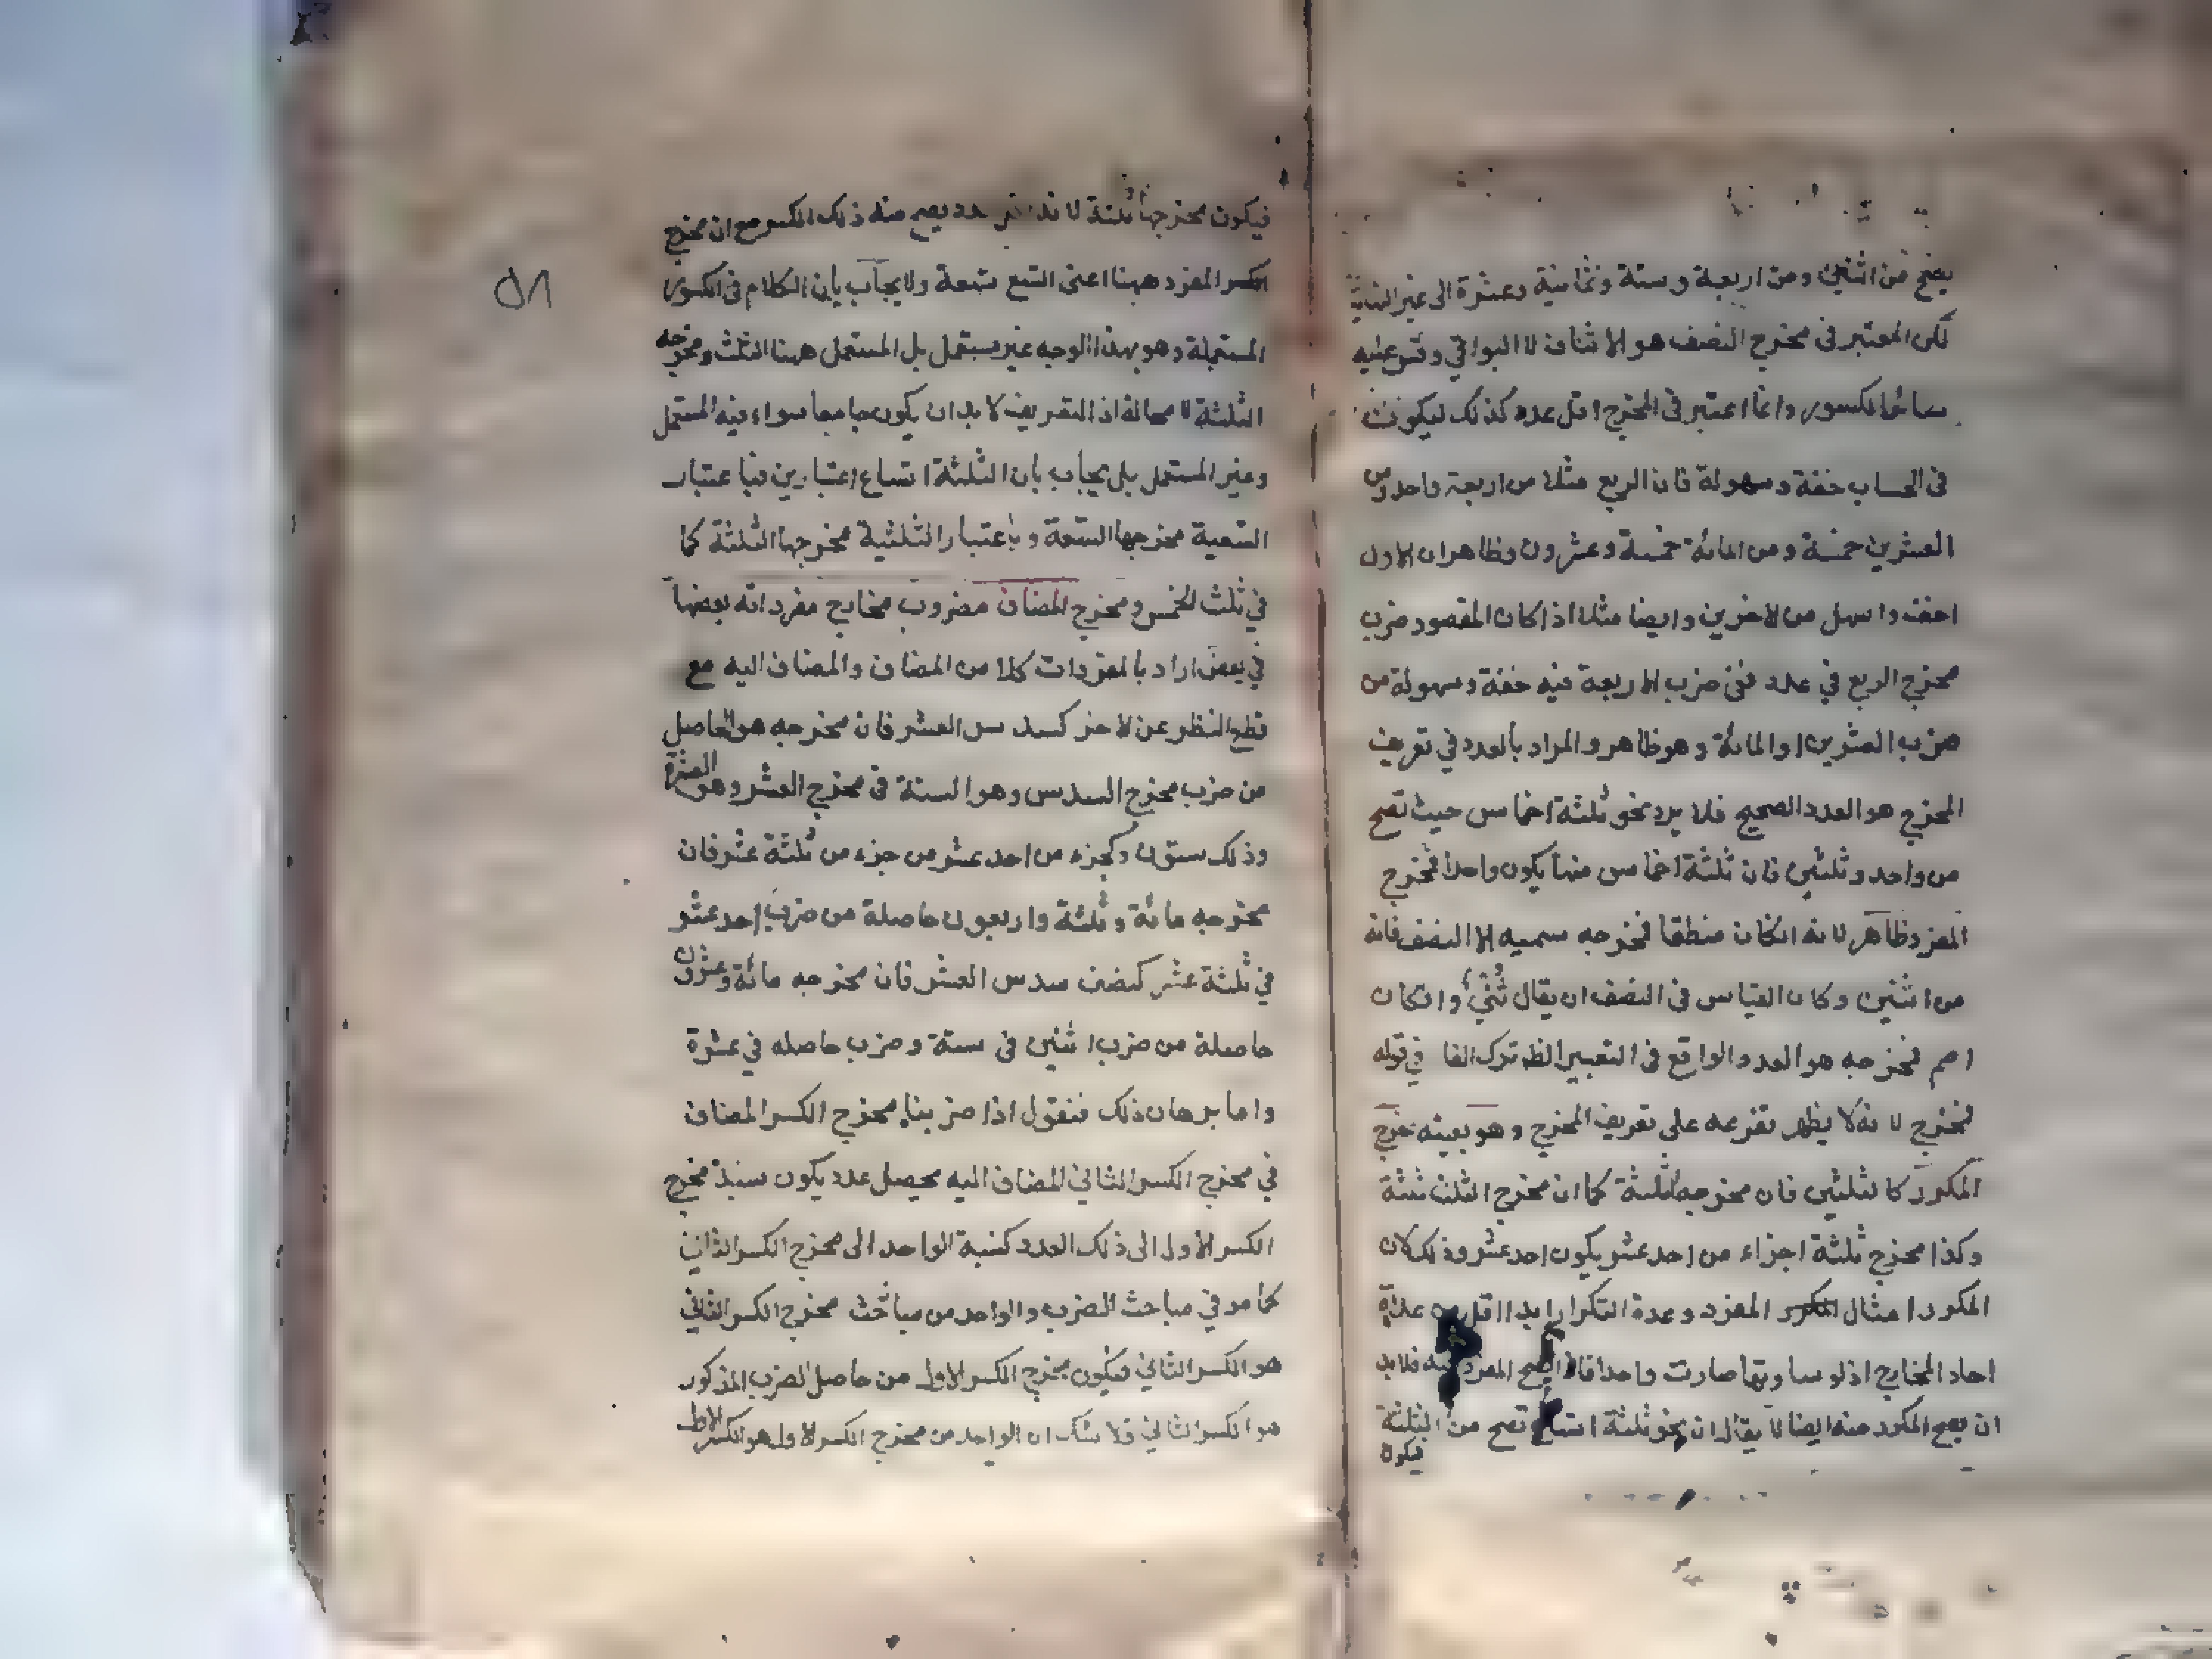 يصح من اثنين ومن اربعة وستة وثمانية وعشرة الى غير النهاية
لكن المعتبر فى مخرج النصف هو الاثنان لا البواقي وقس عليه
سائر الكسور وانما اعتبر فى المخرج اقل عدد كذلك ليكون
فى الحساب خفة وسهولة فان الربع مثلا من اربعة واحد ومن
العشرين خمسة ومن المائة خمسة وعشرون وظاهر ان الاول
اخف واسهل من الاخرين وايضا مثلا اذا كان المقصود ضرب
مخرج الربع في عدد ففى ضرب الاربعة فيه خفة وسهولة من
ضرب العشرين او المائة وهو ظاهر والمراد بالعدد في تعريف
المخرج هو العدد الصحيح فلا يرد نحو ثلثة اخماس حيث تصح
من واحد وثلثين فان ثلثة اخماس منها يكون واحدا فمخرج
المفرد ظاهر لانه انكان منطقا فمخرجه سميه الا النصف فانه
من اثنين وكان القياس فى النصف ان يقال ثنى وانكان
اصم فمخرجه هو العدد الواقع فى التعبير الظ ترك الفا في قوله
فمخرج لانه لا يظهر تفرعه على تعريف المخرج وهو بعينه مخرج
المكرر كالثلثين فان مخرجه الثلثة كما ان مخرج الثلث ثلثة
وكذا مخرج ثلثة اجزاء من احد عشر يكون احد عشر وذلك لان
المكرر امثال المفرد وعدة التكرار ابدا اقل من عدة
احاد المخارج اذ لو ساوتها صارت واحدا فاذا صح المفرد منه فلابد
ان يصح المكرر منه ايضا لا يقال ان نحو ثلثة اتساع تصح من الثلثة
فيكون
فيكون مخرجها ثلثة لانه عدد يصح منه ذلك الكسر مع ان مخرج
الكسر المفرد ههنا اعنى التسع تسعة ولا يجاب بان الكلام فى الكسور
المستعملة وهو بهذا الوجه غير مستعمل بل المستعمل ههنا الثلث ومخرجه
الثلثة لا محالة اذ التعريف لابد ان يكون جامعا سواء فيه المستعمل
وغير المستعمل بل يجاب بان الثلثة اتساع اعتبارين فباعتبار
التسعية مخرجها التسعة وباعتبار الثلثية مخرجها الثلثة كما
في ثلث الخمس ومخرج المضاف مضروب مخارج مفرداته بعضها
في بعض اراد بالمفردات كلا من المضاف والمضاف اليه مع
قطع النظر عن الاخر كسدس العشر فان مخرجه هو الحاصل
من ضرب مخرج السدس وهو الستة فى مخرج العشر وهو العشرة
وذلك ستون وكجزء من احد عشر من جزء من ثلثة عشر فان
مخرجه مائة وثلثة واربعون حاصلة من ضرب احد عشر
في ثلثة عشر كنصف سدس العشر فان مخرجه مائة وعشرون
حاصلة من ضرب اثنين فى ستة وضرب حاصله في عشرة
واما برهان ذلك فنقول اذا ضربنا مخرج الكسر المضاف
في مخرج الكسر الثاني المضاف اليه يحصل عدد يكون نسبة مخرج
الكسر الاول الى ذلك العدد كنسبة الواحد الى مخرج الكسر الثاني
كما مر في مباحث الضرب والواحد من مخرج الكسر الثاني
هو الكسر الثاني فيكون مخرج الكسر الاول من حاصل الضرب المذكور
هو الكسر الثاني فلا شك ان الواحد من مخرج الكسر الاول هو الكسر الاول